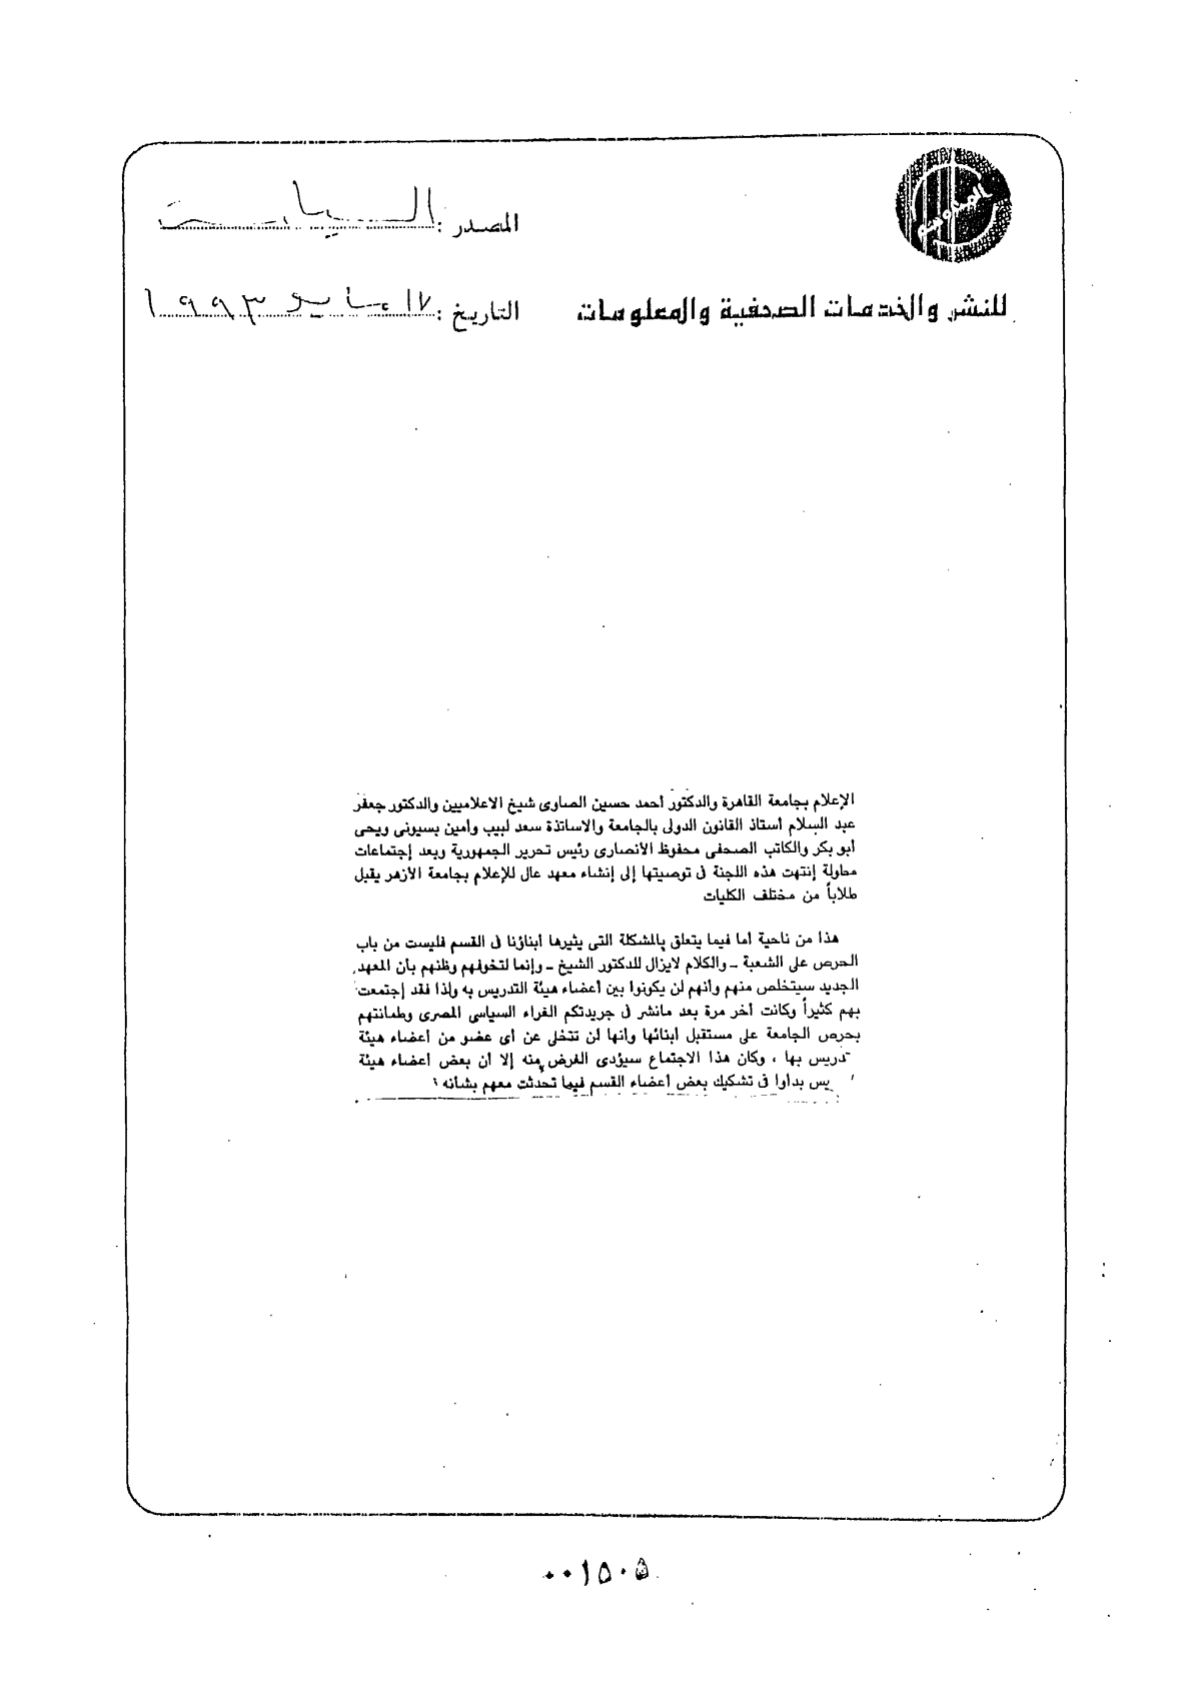 المصدر : السياسة
للنشر والخدمات الصحفية والمعلومات
التاريخ : ١٧ مايو ١٩٩٣
الإعلام بجامعة القاهرة والدكتور أحمد حسين الصاوى شيخ الاعلاميين والدكتور جعفر
عبد السلام أستاذ القانون الدولى بالجامعة والاساتذة سعد لبيب وأمين بسيونى ويحى
أبو بكر والكاتب الصحفى محفوظ الأنصارى رئيس تحرير الجمهورية وبعد إجتماعات
مطولة إنتهت هذه اللجنة فى توصيتها إلى إنشاء معهد عال للإعلام بجامعة الأزهر يقبل
طلاباً من مختلف الكليات
هذا من ناحية أما فيما يتعلق بالمشكلة التى يثيرها أبناؤنا فى القسم فليست من باب
الحرص على الشعبة ـ والكلام لايزال للدكتور الشيخ ـ وإنما لتخوفهم وظنهم بأن المعهد
الجديد سيتخلص منهم وأنهم لن يكونوا بين أعضاء هيئة التدريس به ولذا فقد إجتمعت
بهم كثيراً وكانت أخر مرة بعد مانشر فى جريدتكم الغراء السياسى المصرى وطمأنتهم
بحرص الجامعة على مستقبل أبنائها وأنها لن تتخلى عن أى عضو من أعضاء هيئة
تدريس بها ، وكان هذا الاجتماع سيؤدى الغرض منه إلا أن بعض أعضاء هيئة
يس بدأوا فى تشكيك بعض أعضاء القسم فيما تحدثت معهم بشأنه
٠٠١٥٠٥